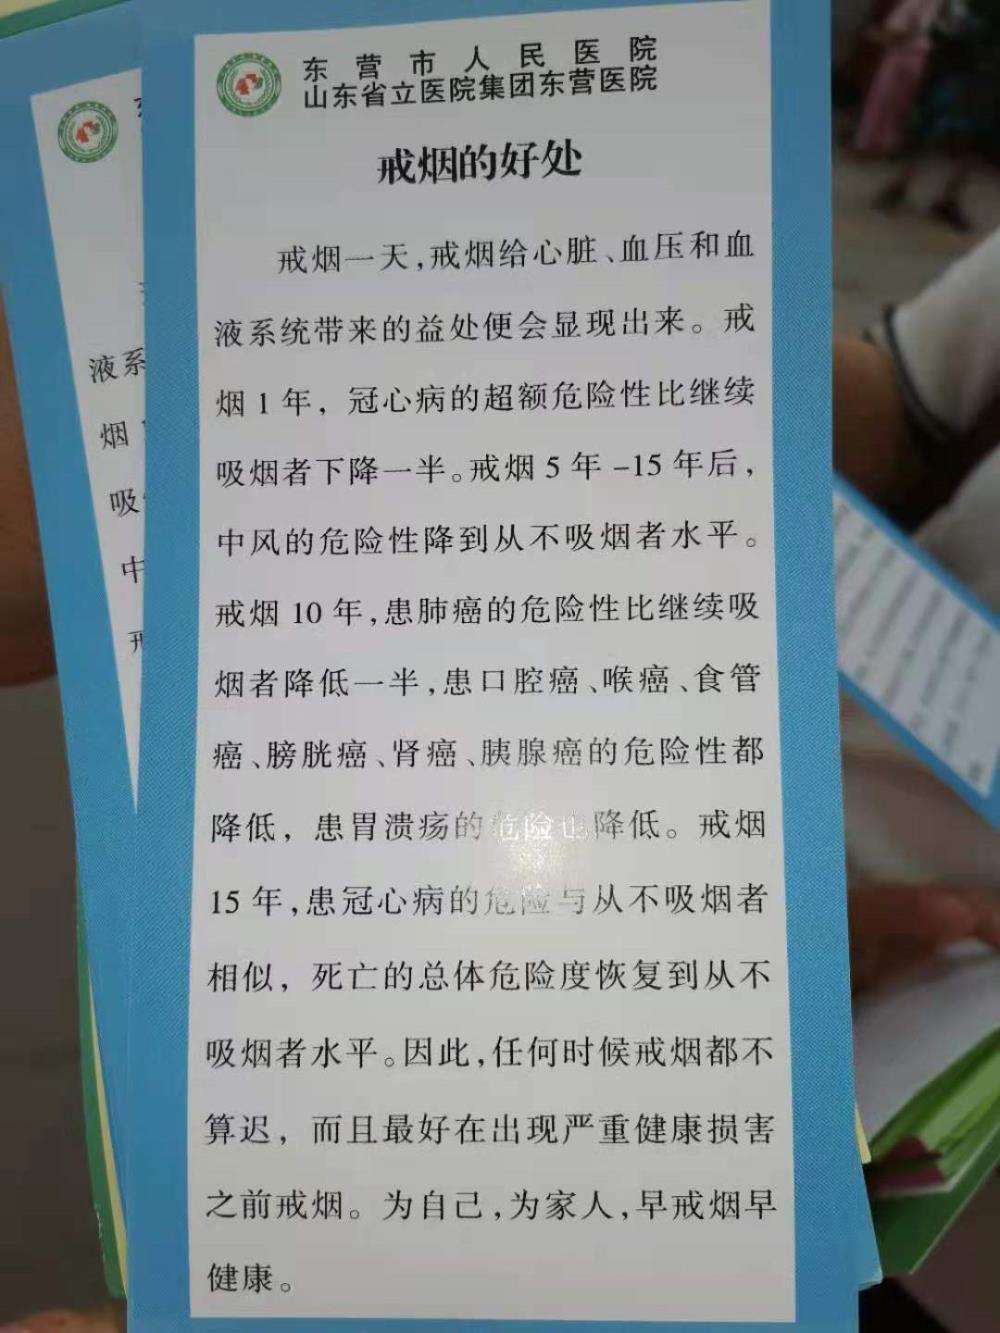 东营市人民医院
山东省立医院集团东营医院
戒烟的好处
戒烟一天,戒烟给心脏、血压和血
液系统带来的益处便会显现出来。戒
烟1年，冠心病的超额危险性比继续
吸烟者下降一半。戒烟5年-15年后，
中风的危险性降到从不吸烟者水平。
戒烟10年,患肺癌的危险性比继续吸
烟者降低一半,患口腔癌、喉癌、食管
癌、膀胱癌、肾癌、胰腺癌的危险性都
降低，患胃溃疡的危险也降低。戒烟
15年,患冠心病的危险与从不吸烟者
相似，死亡的总体危险度恢复到从不
吸烟者水平。因此,任何时候戒烟都不
算迟，而且最好在出现严重健康损害
之前戒烟。为自己,为家人,早戒烟早
健康。
液系
烟1
吸
中